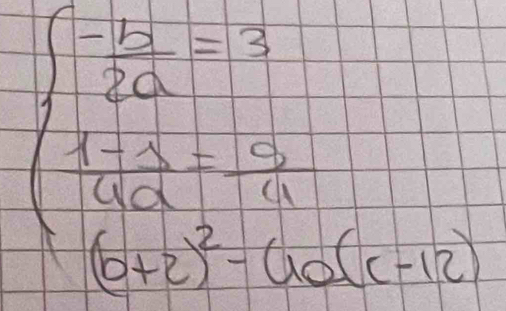 -b/2a = 3
1-Δ/4a = 9/4
(b+2)² - 4a(c-12)